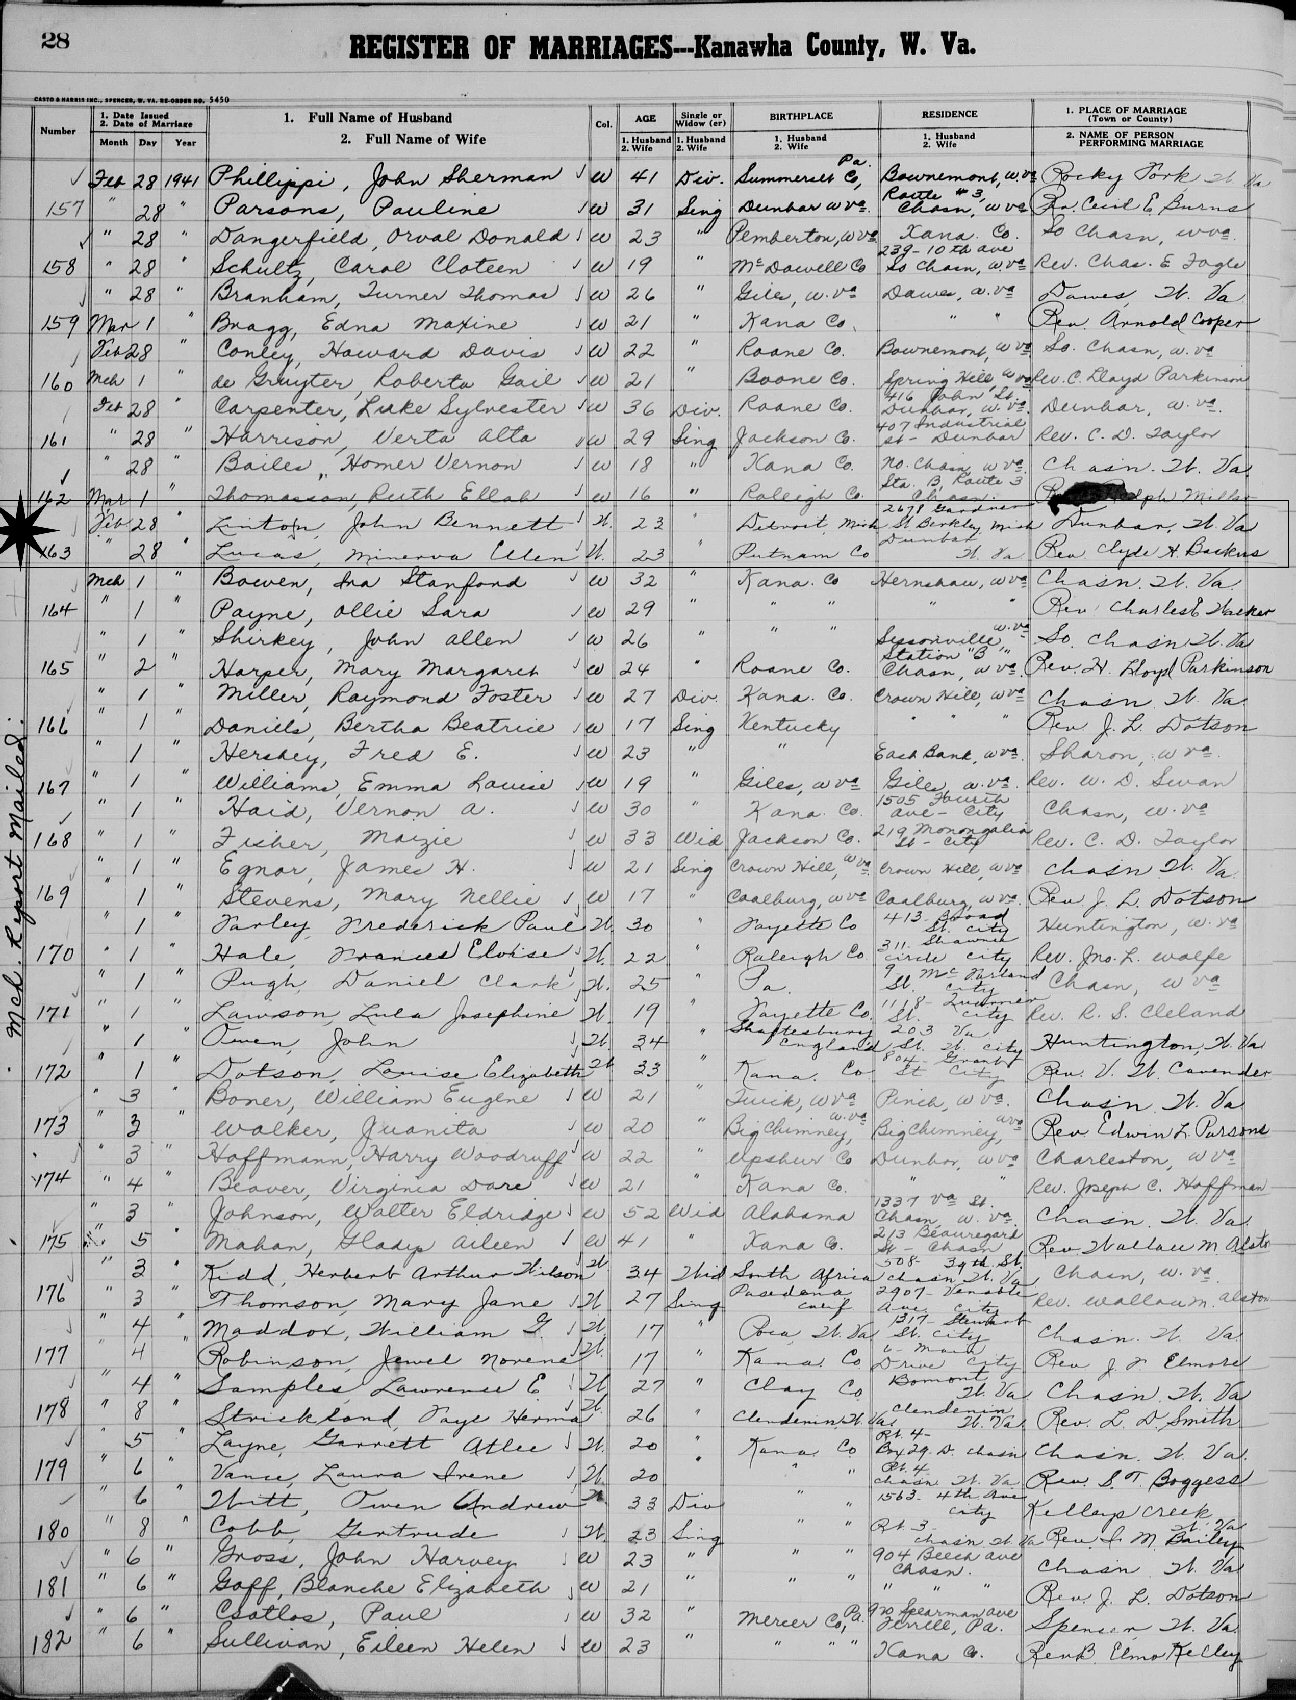 28
REGISTER OF MARRIAGES---Kanawha County, W. Va.
CASTO & HARRIS INC., SPENCER, W. VA. RE-ORDER NO. 5450
Number 1. Date Issued 2. Date of Marriage Month Day Year 1. Full Name of Husband 2. Full Name of Wife Col. AGE 1. Husband 2. Wife Single or Widow (er) 1. Husband 2. Wife BIRTHPLACE 1. Husband 2. Wife RESIDENCE 1. Husband 2. Wife 1. PLACE OF MARRIAGE (Town or County) 2. NAME OF PERSON PERFORMING MARRIAGE
Feb 28 1941 Phillippi, John Sherman W 41 Div. Summerset Co, Pa. Bownemont, W.Va Rocky Fork W Va
157 " 28 " Parsons, Pauline W 31 Sing Dunbar W Va. Route #3, Chasn, W Va Rev. Cecil E Burns
" 28 " Dangerfield, Orval Donald W 23 " Pemberton, W Va Kana. Co. So Chasn, W Va.
158 " 28 " Schultz, Carol Cloteen W 19 " McDowell Co 239-10th ave So Chasn, W. Va Rev. Chas. E Fogle
" 28 " Branham, Turner Thomas W 26 " Giles, W. Va Dawes, W. Va Dawes, W. Va
159 Mar 1 " Bragg, Edna Maxine W 21 " Kana Co. " " Rev Arnold Cooper
Feb 28 " Conley, Howard Davis W 22 " Roane Co. Bownemont, W Va So. Chasn, W. Va
160 Mch 1 " de Gruyter, Roberta Gail W 21 " Boone Co. Spring Hill, W Va Rev. C. Lloyd Parkinson
Feb 28 " Carpenter, Luke Sylvester W 36 Div. Roane Co. 416 John St. Dunbar, W. Va. Dunbar, W. Va.
161 " 28 " Harrison, Verta Alta W 29 Sing Jackson Co. 407 Industrial St - Dunbar Rev. C. D. Taylor
" 28 " Bailes, Homer Vernon W 18 " Kana Co. No. Chasn, W Va. Chasn. W. Va.
162 Mar 1 " Thomasson, Ruth Ellah W 16 " Raleigh Co. Sta. B, Route 3 Chasn. Ralph Miller
Feb 28 " Linton, John Bennett W. 23 " Detroit, Mich 2678 Gardner St Berkley Mich Dunbar, W. Va
163 " 28 " Lucas, Minerva Ellen W. 23 " Putnam Co Dunbar W. Va Rev Clyde H. Backus
Mch 1 " Bowen, Ira Stanford W 32 " Kana. Co Hernshaw, W Va Chasn. W. Va.
164 " 1 " Payne, Ollie Sara W 29 " " " " " Rev. Charles E Walker
" 1 " Shirkey, John Allen W 26 " " " Sissonville, W. Va So. Chasn W. Va
165 " 2 " Harper, Mary Margaret W 24 " Roane Co. Station "B", Chasn, W Va. Rev. H. Lloyd Parkinson
" 1 " Miller, Raymond Foster W 27 Div. Kana. Co. Crown Hill, W Va Chasn. W. Va
166 " 1 " Daniels, Bertha Beatrice W 17 Sing Kentucky " " " Rev J. L. Dotson
" 1 " Hershey, Fred E. W 23 " " East Bank, W Va Sharon, W Va.
167 " 1 " Williams, Emma Louise W 19 " Giles, W Va Giles, W. Va Rev. W. D. Swan
" 1 " Haid, Vernon A. W 30 " Kana. Co. 1505 Fourth ave - City Chasn, W. Va
168 " 1 " Fisher, Mazie W 33 Wid Jackson Co. 219 Monongalia St - City Rev. C. D. Taylor
" 1 " Egnor, James H. W 21 Sing Crown Hill, W Va. Crown Hill, W Va Chasn W. Va.
169 " 1 " Stevens, Mary Nellie W 17 " Coalburg, W Va Coalburg, W Va. Rev J. L. Dotson
" 1 " Farley, Frederick Paul W. 30 " Fayette Co 413 Broad St. City Huntington, W. Va
170 " 1 " Hale, Frances Eloise W. 22 " Raleigh Co 311 Shawnee Circle City Rev. Jno. L. Wolfe
" 1 " Pugh, Daniel Clark W. 25 " Pa. 9 McFarland St. City Chasn, W Va
171 " 1 " Lawson, Lula Josephine W. 19 " Fayette Co. 1118- St. City Rev. R. S. Cleland
" 1 " Owen, John W. 34 " Shaftesbury England 203 Va St. W. City Huntington, W. Va
172 " 1 " Dotson, Louise Elizabeth W 33 " Kana. Co 804- Granby St City Rev. V. W. Cavender
" 3 " Boner, William Eugene W 21 " Quick, W Va Pinch, W Va. Chasn. W. Va
173 " 3 " Walker, Juanita W 20 " Big Chimney, W. Va Big Chimney, W Va Rev Edwin L. Parsons
" 3 " Hoffmann, Harry Woodruff W 22 " Upshur Co Dunbar, W Va Charleston, W Va
174 " 4 " Beaver, Virginia Dare W 21 " Kana Co. " " Rev. Joseph C. Hoffman
" 3 " Johnson, Walter Eldridge W 52 Wid Alabama 1337 Va St. Chasn, W. Va. Chasn. W. Va.
175 " 5 " Mahan, Gladys Aileen W 41 " Kana Co. 213 Beauregard St - Chasn Rev Wallace M Alston
" 3 " Kidd, Herbert Arthur Wilson W 34 Wid South Africa 508- 39th St. Chasn. W. Va Chasn, W. Va.
176 " 3 " Thomson, Mary Jane W. 27 Sing Pasadena Calif 2907- Venable Ave. City Rev. Wallace M. Alston
" 4 " Maddox, William G. W. 17 " Poca, W. Va 1317- Stewart St. City Chasn. W. Va
177 " 4 Robinson, Jewel Norene W. 17 " Kana. Co. 6- Main Drive City Rev J. F Elmore
" 4 " Samples, Lawrence E W. 27 " Clay Co Bomont W. Va Chasn. W. Va
178 " 8 " Strickland, Faye Herma W 26 " Clendenin, W. Va. Clendenin W. Va Rev. L. D. Smith
" 5 " Layne, Garrett Atlee W. 20 " Kana. Co Rt. 4- Box 29. D. Chasn Chasn. W. Va
179 " 6 " Vance, Laura Irene W. 20 " " " Rt. 4 Chasn. W. Va Rev. S. T. Boggess
" 6 " Witt, Owen Andrew W 33 Div " " 1563- 4th Ave City Kellys Creek W. Va
180 " 8 " Cobb, Gertrude W. 23 Sing " " Rt. 3 Chasn. W. Va Rev. I. M. Bailey
" 6 " Gross, John Harvey W 23 " " " 904 Beech Ave Chasn. Chasn. W. Va
181 " 6 " Goff, Blanche Elizabeth W 21 " " " " " " Rev. J. L. Dotson
" 6 " Csatlos, Paul W 32 " Mercer Co, Pa. 920 Spearman Ave Ferrell, Pa. Spencer, W. Va.
182 " 6 " Sullivan, Eileen Helen W 23 " " " " Kana Co. Rev B. Elmo Kelley
Mch. Report Mailed.